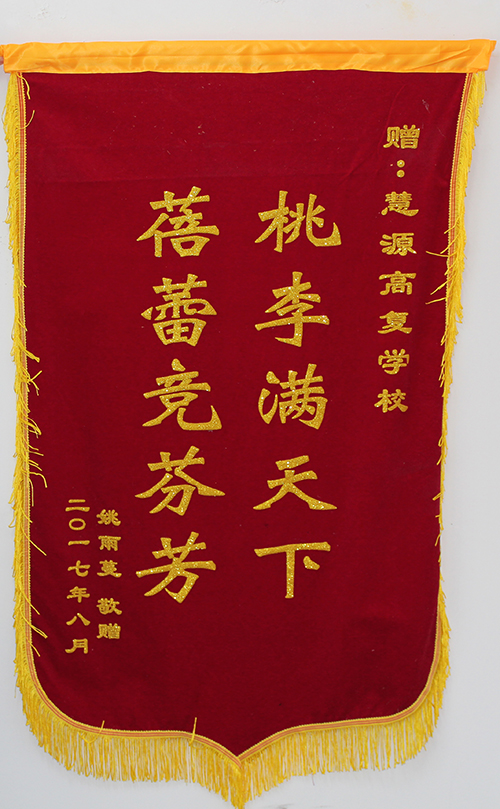 赠：慧源高复学校
桃李满天下
蓓蕾竞芬芳
姚雨蔓 敬赠
二〇一七年八月